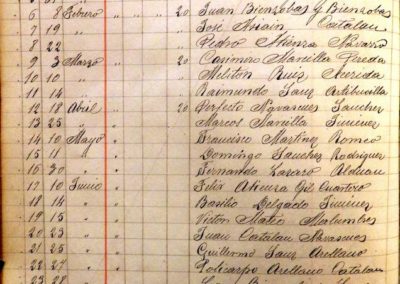 6 8 Febrero " " 20 Juan Bienzobas y Bienzobas
7 19 " " " José Marin Catalan
8 22 " Pedro Atienza Navarro
9 3 Marzo " " 20 Casimiro Mancilla Pereda
10 10 " " Meliton Ruiz
11 14 " " Raimundo Sanz
12 18 Abril " 20 Perfecto Navascues Sanchez
13 25 " " Marcos Mancilla Jimenez
14 10 Mayo " Francisco Martinez Romeo
15 11 " " Domingo Sanchez Rodriguez
16 30 " " Fernando Lazaro
17 10 Junio " Felix Gil
18 14 " " Basilio Delgado Jimenez
19 15 " " Victor Mateo Malumbres
20 23 " " Juan Catalan Navascues
21 25 " " Guillermo Sanz Arellano
22 27 " " Policarpo Arellano Catalan
23 28